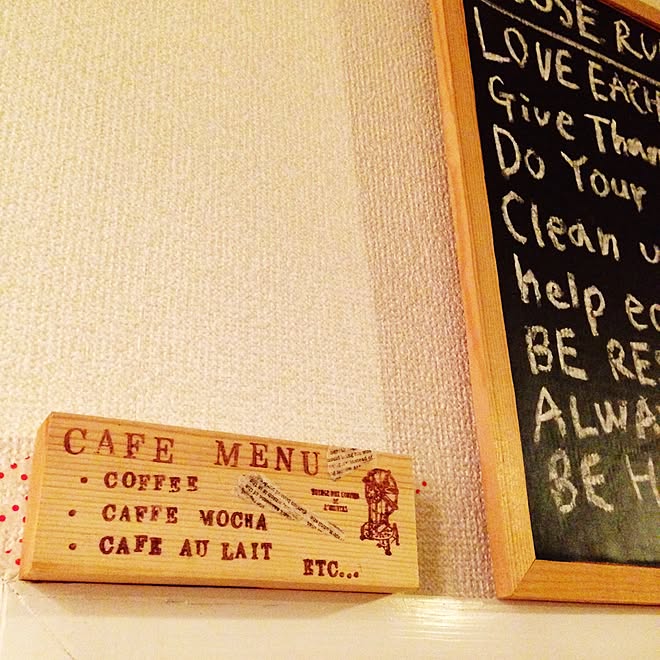 CAFE MENU
• COFFEE
• CAFFE MOCHA
• CAFE AU LAIT
ETC...
LOVE EACH
Give Than
Do Your
Clean u
help
BE RES
ALWA
BE H